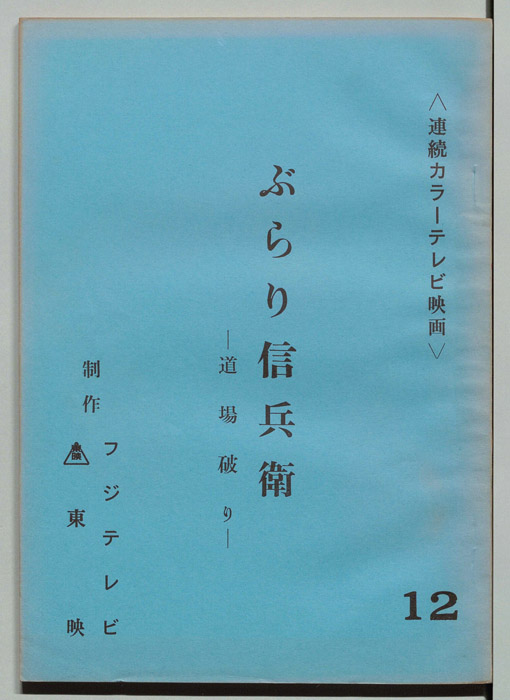 〈連続カラーテレビ映画〉
ぶらり信兵衛
―道場破り―
制作
フジテレビ
東映
東映
12